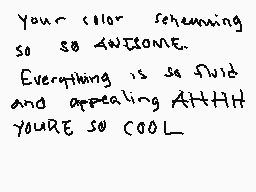 Your color schemming
so so AWESOME.
Everything is so fluid
and appealing AHHHH
YOURE SO COOL